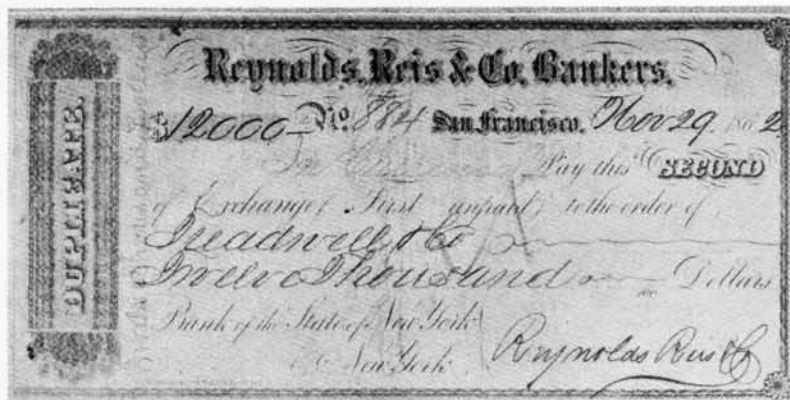 DUPLICATE.
Reynolds, Reis & Co. Bankers.
$12000— No. 884 San Francisco, Nov 29 1862
Pay this SECOND
of Exchange (First unpaid) to the order of
Treadwell & Co
Twelve Thousand Dollars
Bank of the State of New York
New York Reynolds Reis & Co